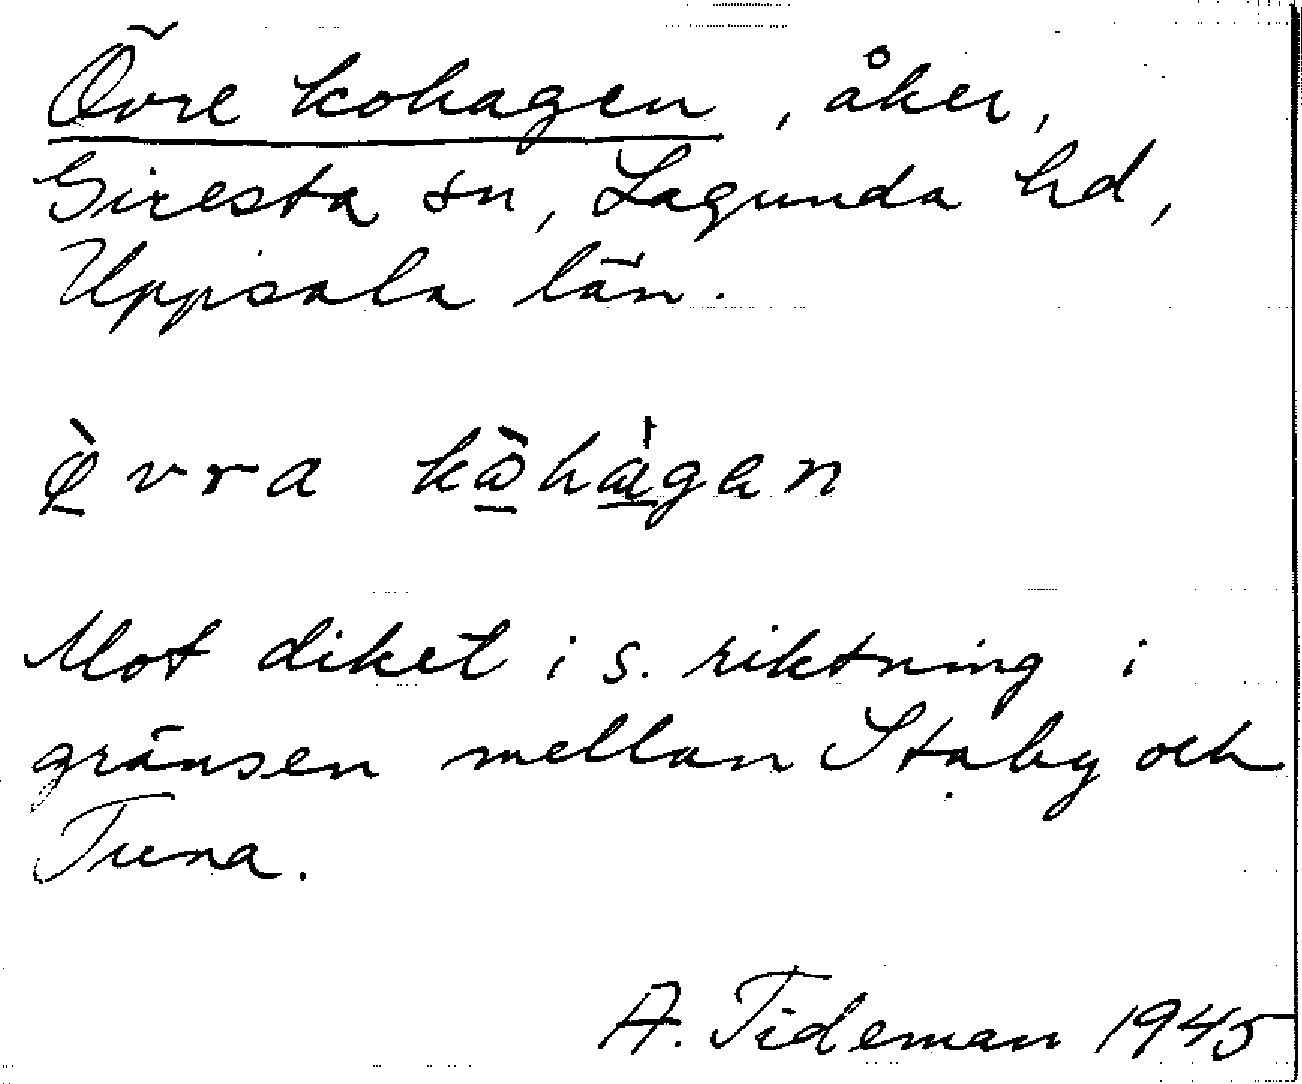 Övre kohagen, åker,
Giresta sn, Lagunda hd,
Uppsala län.
Mot diket i s. riktning i
gränsen mellan Staby och
Tuna.
A. Tideman 1945